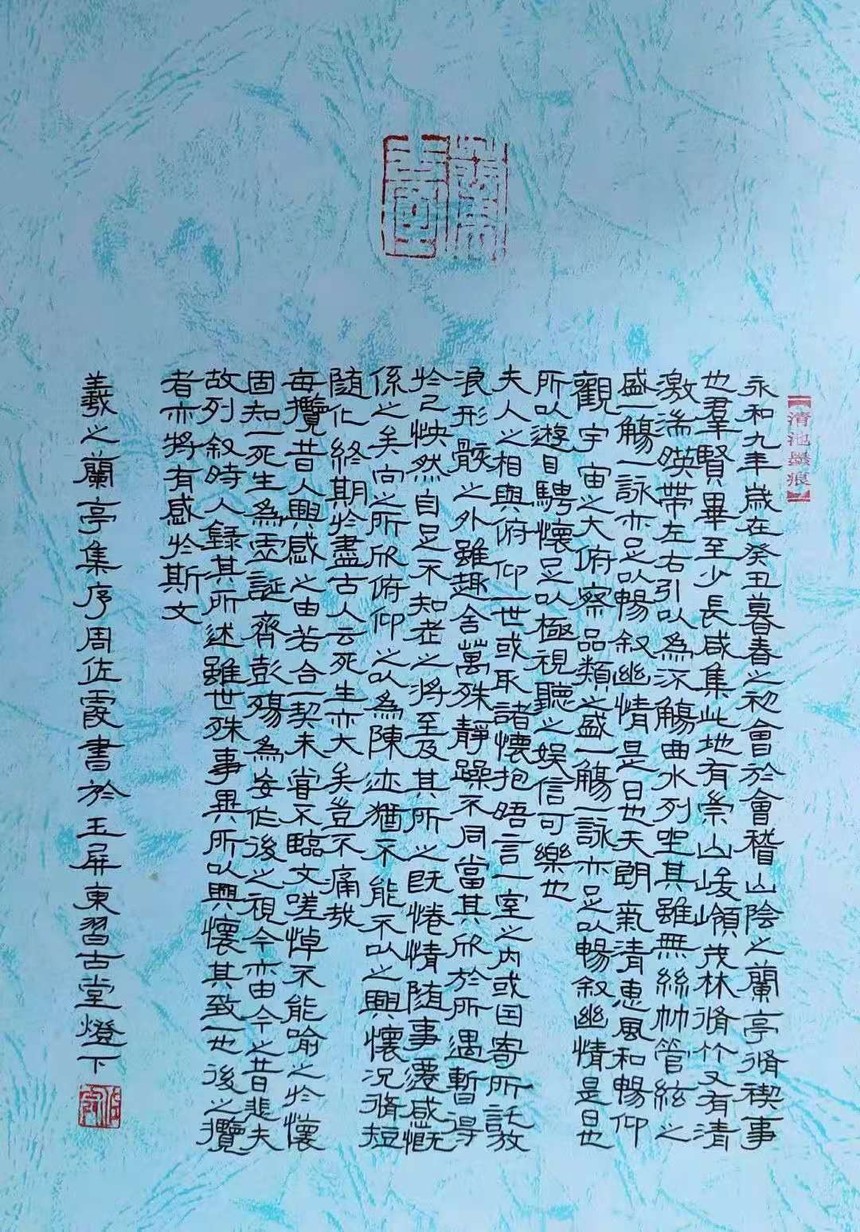 【清池墨痕】
永和九年歲在癸丑暮春之初會於會稽山陰之蘭亭脩禊事
也羣賢畢至少長咸集此地有崇山峻嶺茂林脩竹又有清
激湍暎帶左右引以為流觴曲水列坐其雖無絲竹管絃之
盛一觴一詠亦足以暢叙幽情是日也天朗氣清惠風和暢仰
觀宇宙之大俯察品類之盛一觴一詠亦足以暢叙幽情是日也
所以遊目騁懷足以極視聽之娛信可樂也
夫人之相與俯仰一世或取諸懷抱晤言一室之內或因寄所託放
浪形骸之外雖趣舍萬殊靜躁不同當其欣於所遇暫得
於己怏然自足不知老之將至及其所之既惓情隨事遷感慨
係之矣向之所欣俯仰之以為陳迹猶不能不以之興懷況脩短
隨化終期於盡古人云死生亦大矣豈不痛哉
每攬昔人興感之由若合一契未嘗不臨文嗟悼不能喻之於懷
固知一死生為虛誕齊彭殤為妄作後之視今亦由今之昔悲夫
故列叙時人錄其所述雖世殊事異所以興懷其致一也後之攬
者亦將有感於斯文
羲之蘭亭集序周佐霞書於玉屏東習古堂燈下